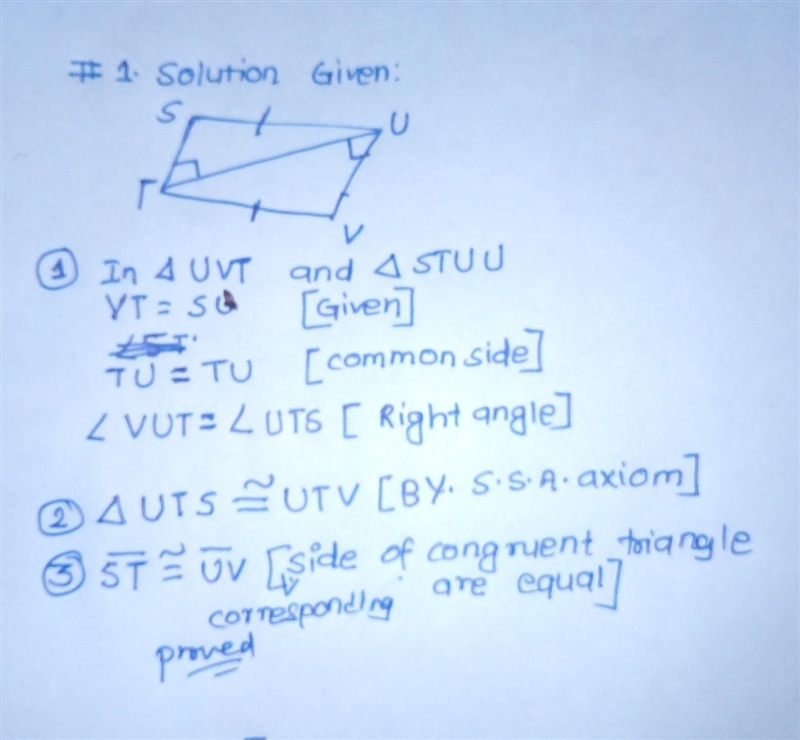 # 1. Solution Given:
S
U
T
V
① In Δ UVT and Δ STUU
VT = SU [Given]
TU = TU [common side]
∠ VUT = ∠ UTS [ Right angle]
② Δ UTS ≅ UTV [BY. S.S.A. axiom]
③ ST ≅ UV [side of congruent triangle
corresponding are equal]
proved